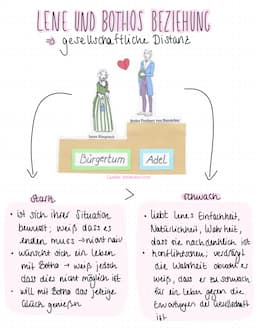 LENE UND BOTHOS BEZIEHUNG
⇒ gesellschaftliche Distanz
Botho Freiherr von Rienäcker
Lene Nimptsch
Bürgertum
Adel
stark
• ist sich ihrer Situation
bewusst, weiß dass es
enden muss → nicht naiv
• wünscht sich ein Leben
mit Botho → weiß jedoch
dass dies nicht möglich ist
• will mit Botho das jetzige
Glück genießen
schwach
• liebt Lenes Einfachheit,
Natürlichkeit, Wahrheit,
dass sie nachdenklich ist
• konfliktscheu; verdrängt
die Wahrheit obwohl er
weiß, dass er zu schwach
für ein Leben gegen die
Erwartungen der Gesellschaft
ist